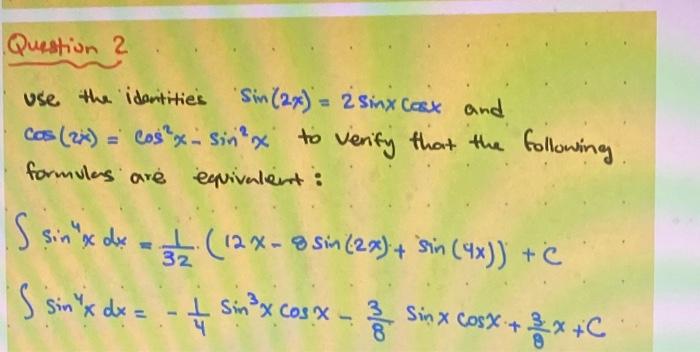 Question 2
use the identities sin(2x) = 2 sinx cosx and
cos(2x) = cos²x - sin²x to verify that the following
formulas are equivalent :
∫ sin⁴x dx = 1/32 (12x - 8 sin(2x) + sin(4x)) + C
∫ sin⁴x dx = - 1/4 sin³x cosx - 3/8 sinx cosx + 3/8 x + C